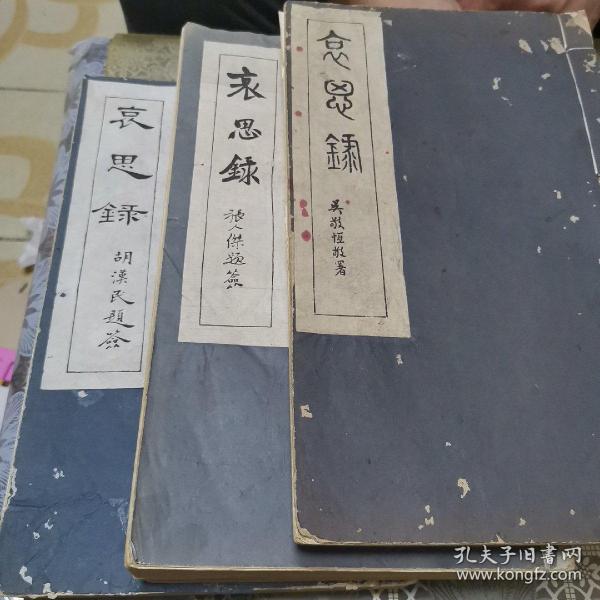 哀思録
吳敬恆敬署
哀思録
張人傑題簽
哀思録
胡漢民題簽
孔夫子旧书网
www.kongfz.com